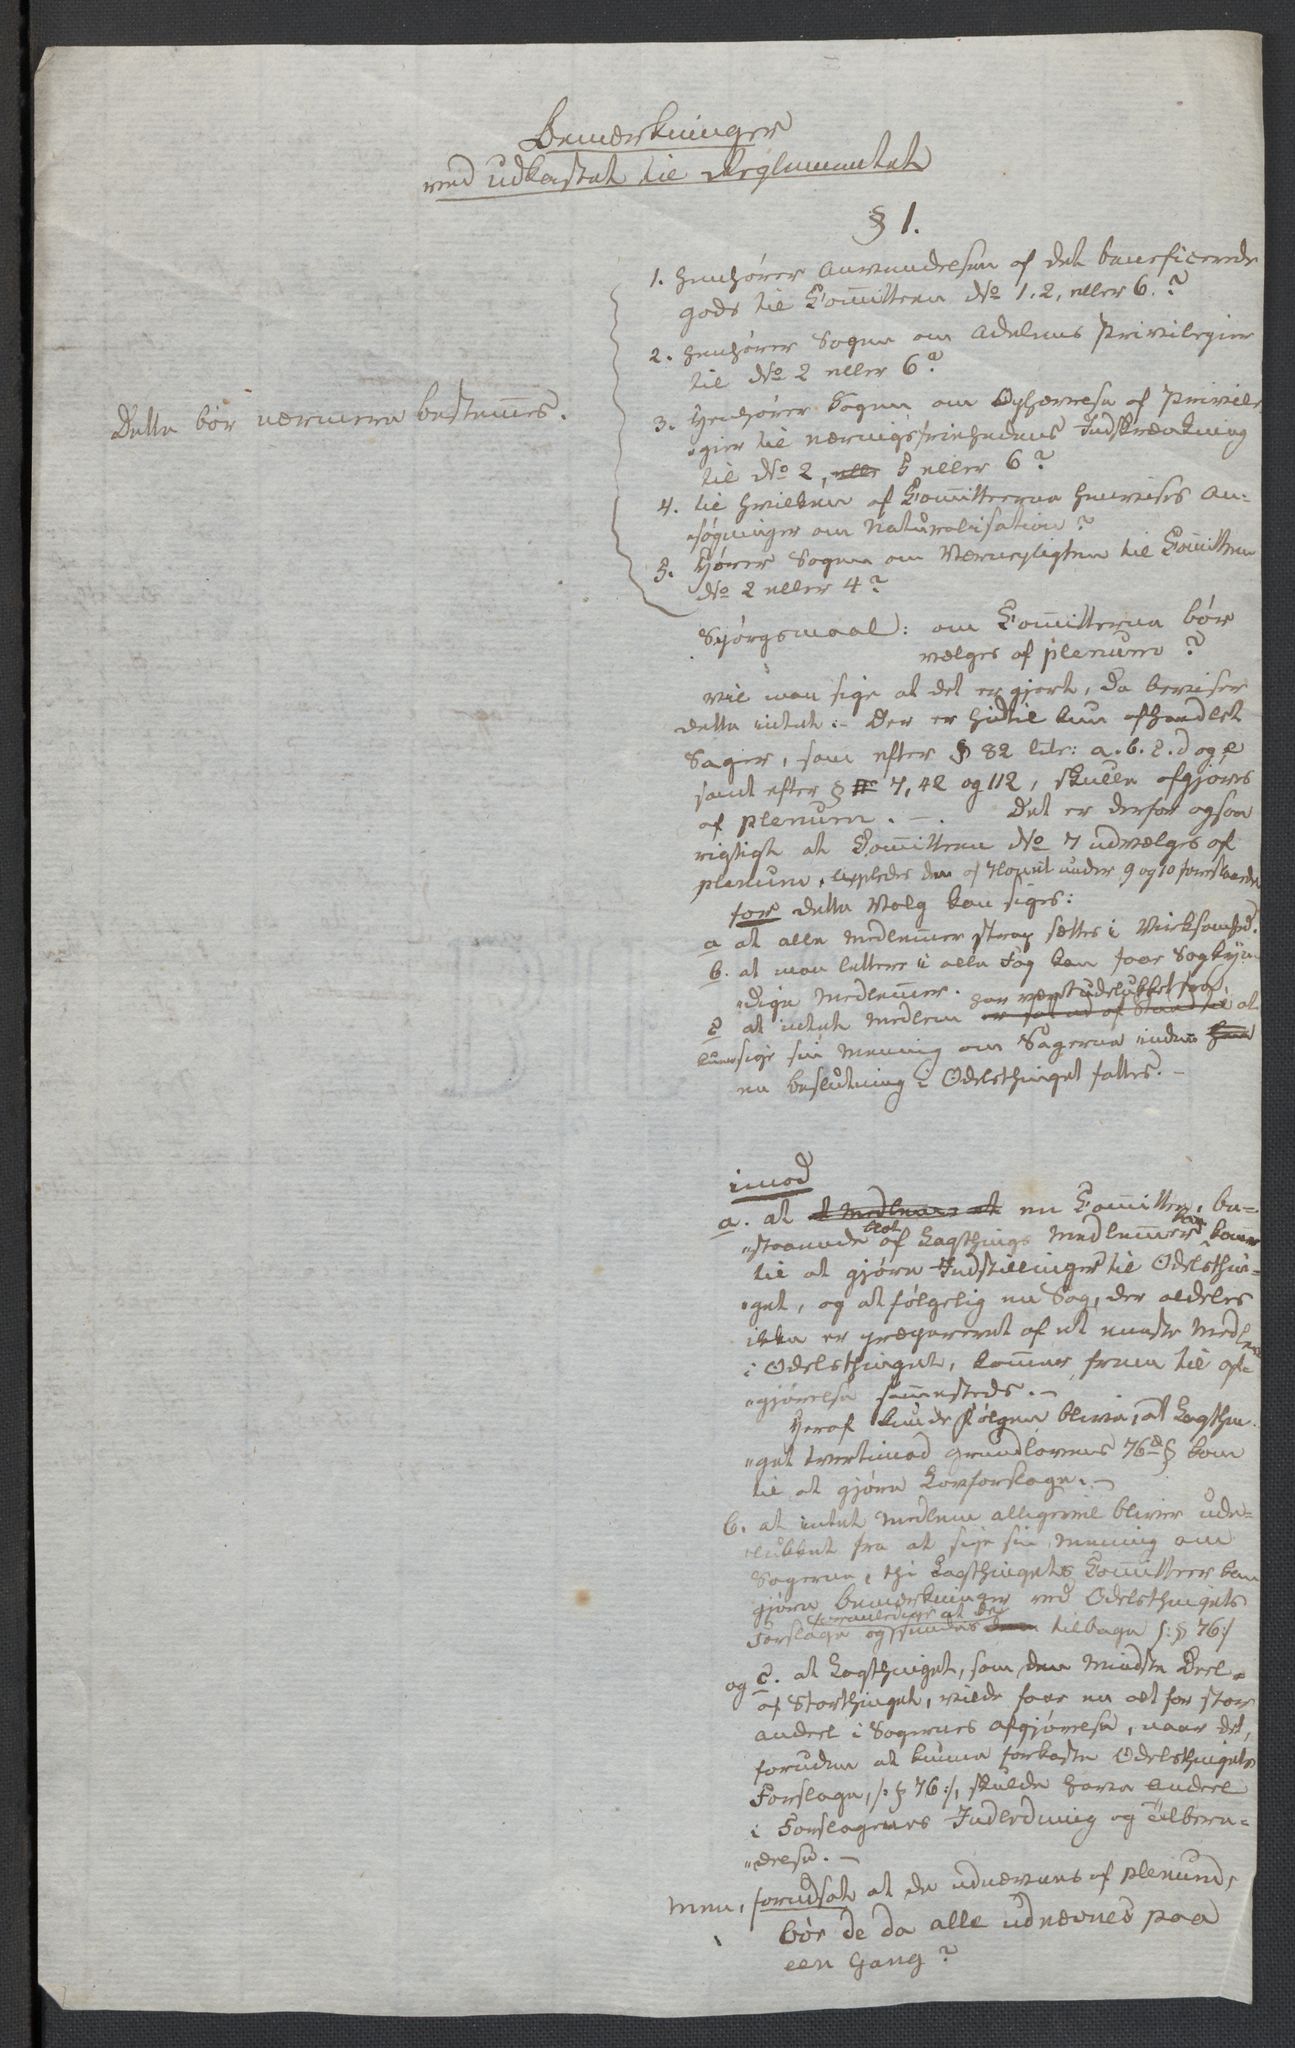 Bemærkninger
ved udkastet til Reglementet
§ 1.
1. henhører Anvendelsen af det beneficerede
gods til Committeen No 1. 2, eller 6.?
2. henhører Sagen om Adelens Privilegier
til No 2 eller 6?
3. Henhører Sagen om Ophævelse af Privile-
"gier til næringsfriehedens Indskrænkning
til No 2, elle 5 eller 6?
Dette bør nærmere bestemes.
4. til hvilken af Committeerne henvises An-
"søgninger om Naturalisation?
5. Hører Sagen om Værnepligten til Comitteen
No 2 eller 4?
Spørgsmaal: om Comitteerne bør
vælges af plenum?
vil man sige at det er gjort, da beviser
dette intet. - Der er hidtil kun afhandlet
Sager, som efter § 82 litr: a. b. c. d og e
samt efter § 7, 42 og 112, skulle afgjøres
af plenum. -. Det er derfor ogsaa
rigtigt at Comitteen No 7 udvælges af
plenum, ligeledes den af under 9 og 10 foreslaaede
for dette Valg kan siges:
a at alle Medlemer strax sættes i Virksomhed.
b. at man lettere i alle Fag kan faae Sagkyn
"dige Medlemer.
har været udelukket fra
c at intet Medlem er sat ud af Stand til at
kune sige sin Mening om Sagerne inden
en beslutning i Odelsthinget fattes. -
imod
a. at et Medlem at en Comittee, be-
"staaende blot af Lagthings Medlemer kan kome
til at gjøre Indstillinger til Odelsthin-
"get, og at følgelig en Sag, der aldeles
ikke er præpareret af et eneste Medlem
i Odelsthinget, kommer frem til af-
"gjørelse sammesteds. -
Heraf kunde følgen blive, at Lagthin-
"get tvertimod grundlovens 76de § kom
til at gjøre Lovforslage. -
b. at intet Medlem alligevel bliver ude-
"lukket fra at sige sin Mening om
Sagerne, thi Lagthingets Comitteer kan
gjøre bemærkninger ved Odelsthingets
foranledige at de
Forslage og sendes dem tilbage /: § 76:/
og c. at Lagthinget, som den mindste Deel
af Storthinget, vilde faae en alt for stor
andeel i Sagernes afgjørelse, naar det,
foruden at kunne forkaste Odelsthingets
Forslage, /: § 76:/, skulde have Andeel
i Forslagenes Indledning og Tilbere-
"delse. -
Men, forudsat at de udnævnes af plenum,
bør de da alle udnævnes paa
een Gang?